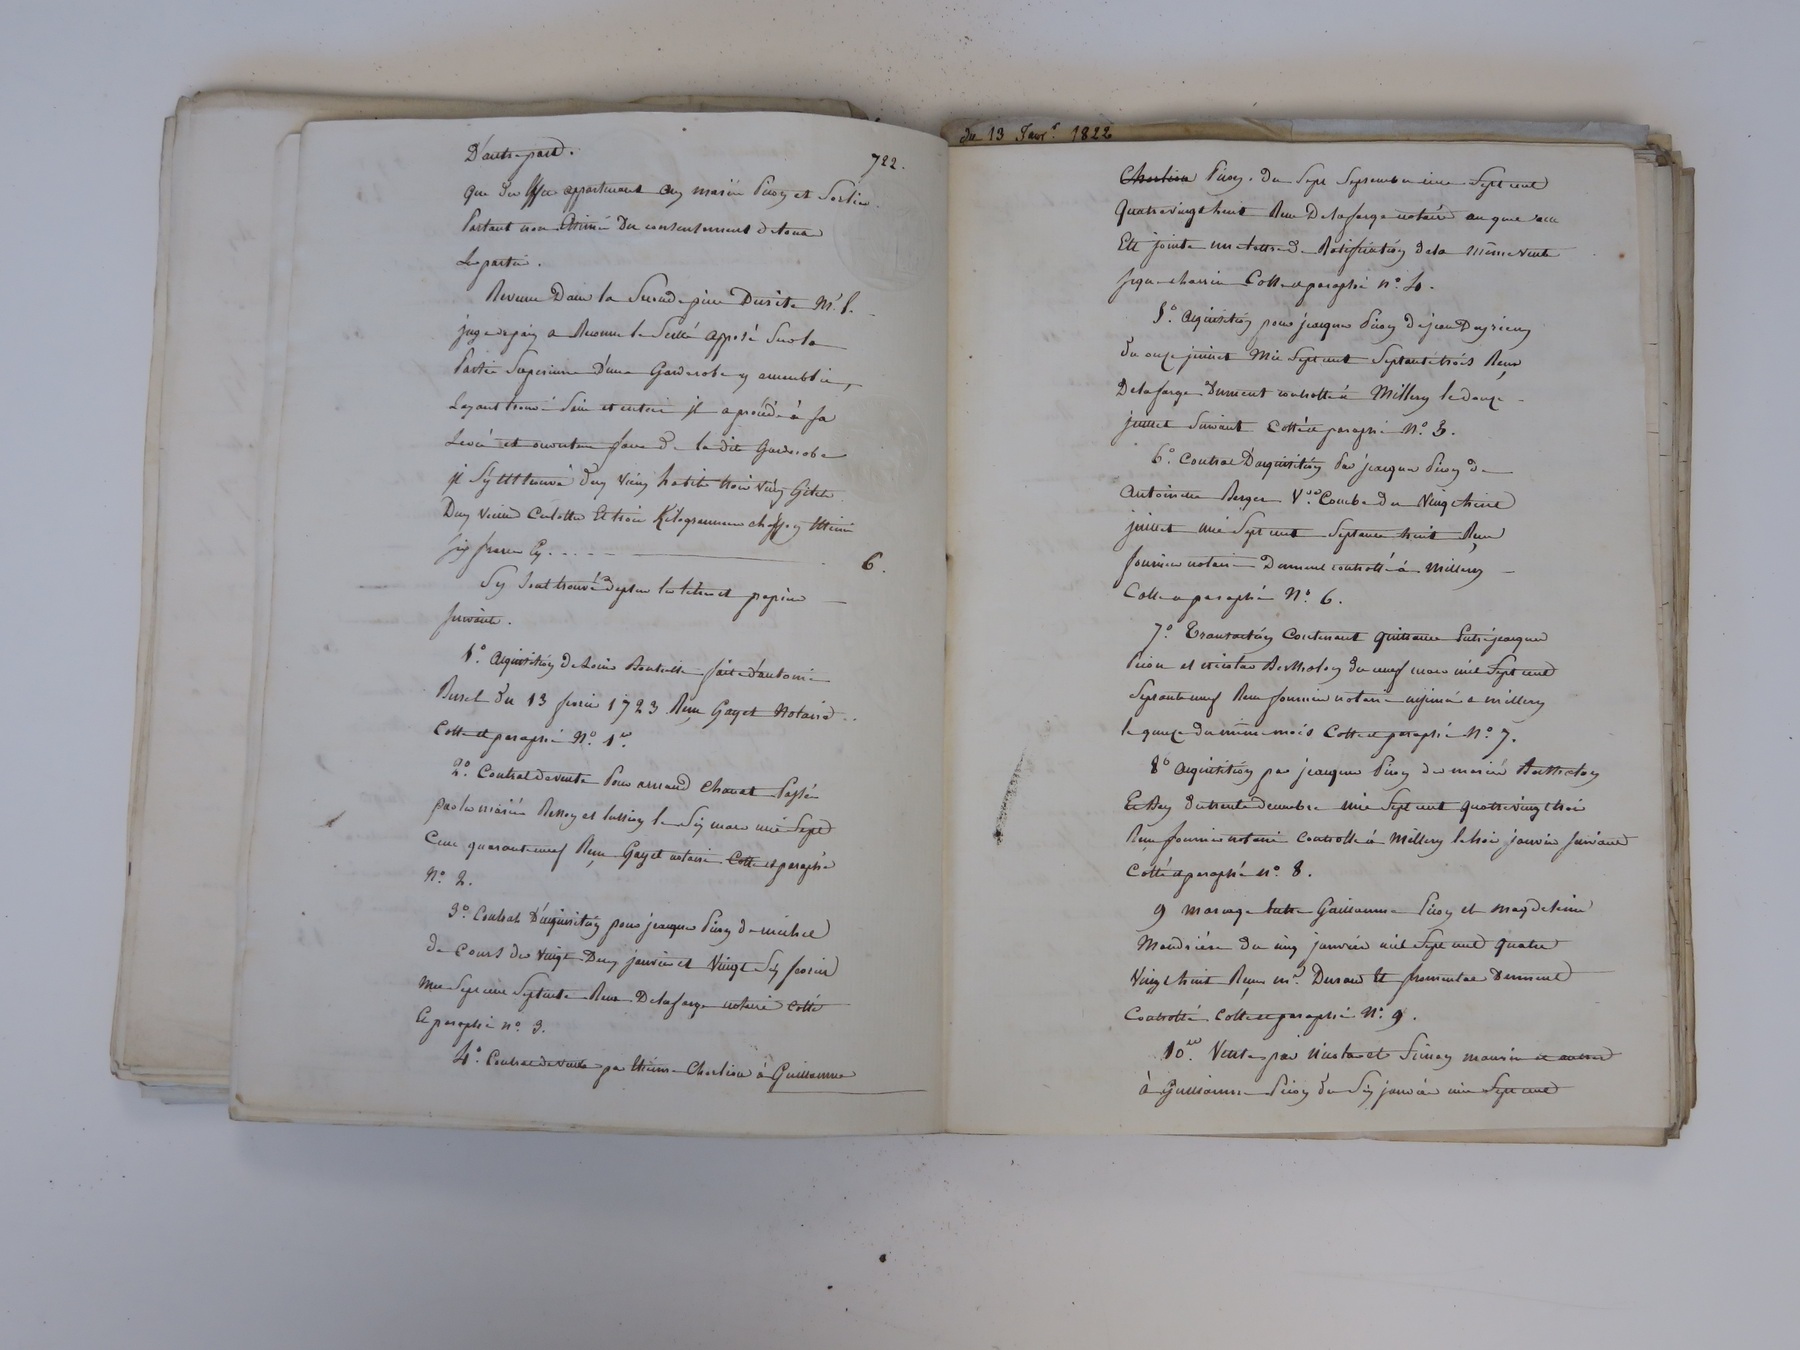 D'autre part. 722.
que du appartenant aux mariés Piroy et
Partant non Estimé du consentement de tous
Les parties.
Revenu Dans la Seconde pièce Mr. le
juge de paix a Reconnu le Scellé apposé Sur la
Partie Superieure D'une Garderobe
Layant trouvé Sain et entier il a procédé à Sa
Levée et ouverture faite de la dite Garderobe
il s'y est trouvé Deux vieux habits trois vieux Gilets
Deux vieilles Culottes Et trois Kilogrammes Estimé
six francs Cy. . . . . 6.
S'y Sont trouvé de plus les titres et papiers
suivants.
1°. Acquisition de Louis faite d'antoine
du 13 fevrier 1723 Reçu Gayet Notaire
Cotté et paraphé N°. 1er.
2°. Contrat de vente Pour arnaud Chanat Passée
par les mariés et le Six mars mil Sept
Cent quarante neuf Reçu Gayet notaire Cotté et paraphé
N°. 2.
3°. Contrat D'acquisition pour jacques Piroy de michel
de Cours des vingt Deux janvier et Vingt Six fevrier
Mil Sept cent Septante Reçu Delafarge notaire Cotté
Et paraphé n°. 3.
4°. Contrat de vente par Etienne Charlion à Guillaume
du 13 Favr. 1822
Charlion Piroy. du Sept Septembre mil Sept cent
Quatre vingt huit Reçu Delafarge notaire auquel acte
Est jointe une lettre de Ratification de la même vente
signé Cotté et paraphé n°. 4.
5°. Acquisition pour jacques Piroy de jean
du onze juillet Mil Sept cent Septante trois Reçu
Delafarge Dument controllé à Millery le douze
juillet Suivant Cotté et paraphé N°. 5.
6°. Contrat D'acquisition Par jacques Piroy de
Antoinette Berger Ve. Combe du Vingt huit
juillet mil Sept cent Septante huit Reçu
fournier notaire Dument controllé à millery
Cotté et paraphé N°. 6.
7°. Transaction Contenant quittance Entre jacques
Piron et nicolas Bertholey du neuf mars mil Sept cent
Septante neuf Reçu fournier notaire à millery
le quinze du même mois Cotté et paraphé N°. 7.
8° Acquisition par jacques Piroy des mariés Bertholey
Et Rey du trente decembre mil Sept cent quatre vingt trois
Reçu fournier notaire Controllé à Millery le trois janvier Suivant
Cotté et paraphé n°. 8.
9 mariage Entre Guillaume Piroy et magdelaine
du cinq janvier mil Sept cent quatre
Vingt huit Reçu me. Durand Et fromental Dument
Controllé Cotté et paraphé N°. 9.
10°. Vente par Nicolas et Simon
à Guillaume Piroy du Six janvier mil Sept cent